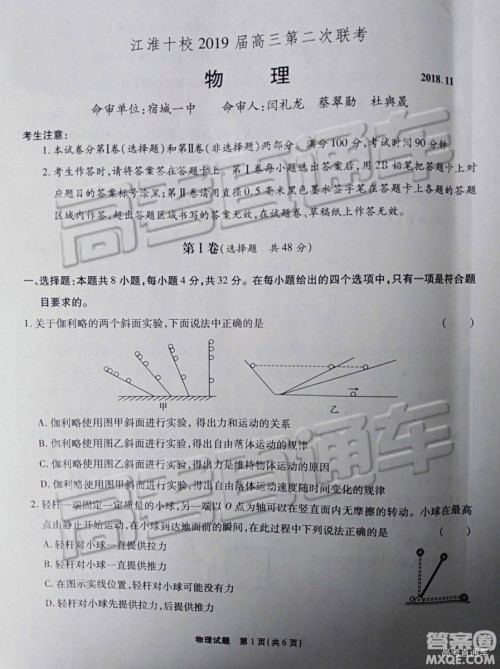 江淮十校2019届高三第二次联考
物 理
2018.11
命审单位:宿城一中 命审人:闫礼龙 蔡翠勋 杜典晟
考生注意:
1.本试卷分第Ⅰ卷(选择题)和第Ⅱ卷(非选择题)两部分。满分100分,考试时间90分钟。
2.考生作答时,请将答案答在答题卡上。第Ⅰ卷每小题选出答案后,用2B铅笔把答题卡上对
应题目的答案标号涂黑;第Ⅱ卷请用直径0.5毫米黑色墨水签字笔在答题卡上各题的答题
区域内作答,超出答题区域书写的答案无效,在试题卷、草稿纸上作答无效。
第Ⅰ卷(选择题 共48分)
一、选择题:本题共8小题,每小题4分,共32分。在每小题给出的四个选项中,只有一项是符合题
目要求的。
1.关于伽利略的两个斜面实验,下面说法中正确的是 ( )
甲
乙
A.伽利略使用图甲斜面进行实验,得出力和运动的关系
B.伽利略使用图乙斜面进行实验,得出自由落体运动的规律
C.伽利略使用图甲斜面进行实验,得出力是维持物体运动的原因
D.伽利略使用图甲斜面进行实验,得出自由落体运动速度随时间变化的规律
2.轻杆一端固定一定质量的小球,另一端以O点为轴可以在竖直面内无摩擦的转动。小球在最高
点由静止开始运动,在小球到达地面前的瞬间,在此过程中下列说法正确的是 ( )
A.轻杆对小球一直提供拉力
B.轻杆对小球一直提供推力
C.在图示实线处,轻杆对小球可能没有力
D.轻杆对小球先提供推力,后提供拉力
O
物理试题 第1页(共6页)
高考直通车
高考直通车
高考直通车
答案圈
MXQE.COM